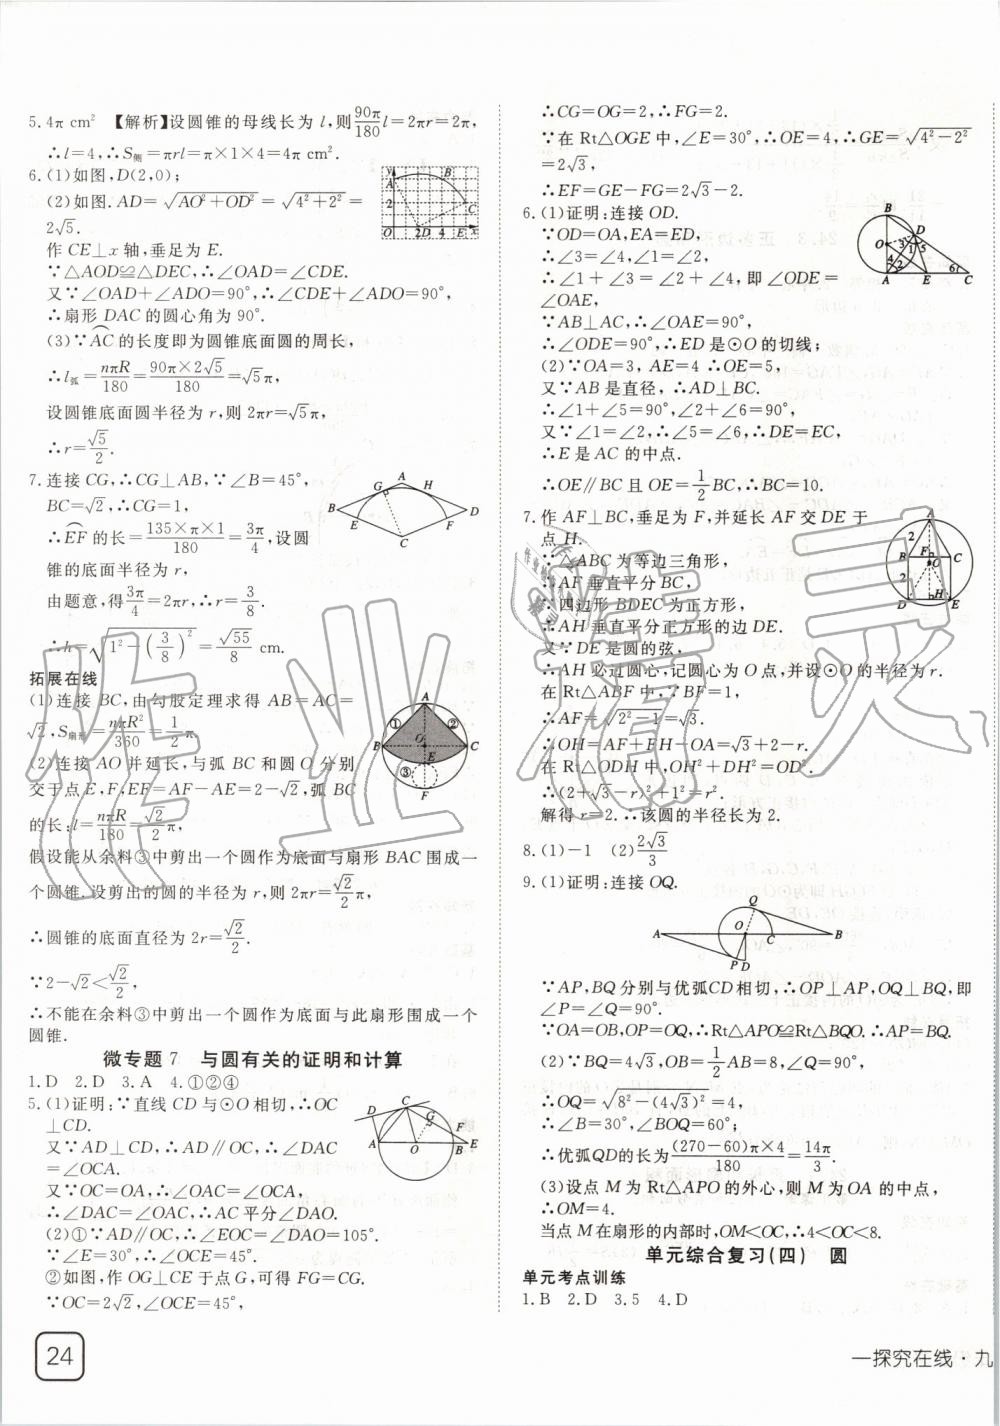 5. 4π cm² 【解析】设圆锥的母线长为 l,则90π/180 l=2πr=2π,
∴l=4,∴S侧=πrl=π×1×4=4π cm².
6. (1)如图,D(2,0);
(2)如图. AD=√(AO²+OD²)=√(4²+2²)=
2√5.
作 CE⊥x 轴,垂足为 E.
∵△AOD≌△DEC,∴∠OAD=∠CDE.
又∵∠OAD+∠ADO=90°,∴∠CDE+∠ADO=90°,
∴扇形 DAC 的圆心角为 90°.
(3)∵⌒AC的长度即为圆锥底面圆的周长,
∴l弧=nπR/180=90π×2√5/180=√5π,
设圆锥底面圆半径为 r,则 2πr=√5π,
∴r=√5/2.
7. 连接 CG,∴CG⊥AB,∵∠B=45°,
BC=√2,∴CG=1,
∴⌒EF的长=135×π×1/180=3π/4,设圆
锥的底面半径为 r,
由题意,得3π/4=2πr,∴r=3/8.
∴h=√(1²-(3/8)²)=√55/8 cm.
拓展在线
(1)连接 BC,由勾股定理求得 AB=AC=
√2,S扇形=nπR²/360=1/2π.
(2)连接 AO 并延长,与弧 BC 和圆 O 分别
交于点 E,F,EF=AF-AE=2-√2,弧 BC
的长:l=nπR/180=√2/2π,
假设能从余料③中剪出一个圆作为底面与扇形 BAC 围成一
个圆锥.设剪出的圆的半径为 r,则 2πr=√2/2π,
∴圆锥的底面直径为 2r=√2/2.
∵2-√2<√2/2,
∴不能在余料③中剪出一个圆作为底面与此扇形围成一个
圆锥.
微专题 7 与圆有关的证明和计算
1. D 2. D 3. A 4. ①②④
5. (1)证明:∵直线 CD 与⊙O 相切,∴OC
⊥CD.
又∵AD⊥CD,∴AD∥OC,∴∠DAC
=∠OCA.
又∵OC=OA,∴∠OAC=∠OCA.
∴∠DAC=∠OAC,∴AC平分∠DAO.
(2)①∵AD∥OC,∴∠EOC=∠DAO=105°.
∵∠E=30°,∴∠OCE=45°.
②如图,作 OG⊥CE 于点 G,可得 FG=CG.
∵OC=2√2,∠OCE=45°,
24
∴CG=OG=2,∴FG=2.
∵在 Rt△OGE 中,∠E=30°,∴OE=4,∴GE=√(4²-2²)
=2√3,
∴EF=GE-FG=2√3-2.
6. (1)证明:连接 OD.
∵OD=OA,EA=ED,
∴∠3=∠4,∠1=∠2,
∴∠1+∠3=∠2+∠4,即∠ODE=
∠OAE,
∵AB⊥AC,∴∠OAE=90°,
∴∠ODE=90°,∴ED是⊙O的切线;
(2)∵OA=3, AE=4 ∴OE=5,
又∵AB是直径,∴AD⊥BC.
∴∠1+∠5=90°,∠2+∠6=90°,
又∵∠1=∠2,∴∠5=∠6,∴DE=EC,
∴E 是 AC 的中点.
∴OE∥BC 且 OE=1/2BC,∴BC=10.
7. 作 AF⊥BC,垂足为 F,并延长 AF 交 DE 于
点 H.
∵△ABC 为等边三角形,
∴AF 垂直平分 BC,
∵四边形 BDEC 为正方形,
∴AH 垂直平分正方形的边 DE.
又∵DE 是圆的弦,
∴AH 必过圆心,记圆心为 O 点,并设⊙O 的半径为 r.
在 Rt△ABF 中,∵∠BAF=30°,
∴AF=√(2²-1)=√3.
∴OH=AF+FH-OA=√3+2-r.
在 Rt△ODH 中,OH²+DH²=OD².
∴(2+√3-r)²+1²=r².
解得 r=2. ∴该圆的半径长为 2.
8. (1)-1 (2)2√3/3
9. (1)证明:连接 OQ.
∵AP,BQ 分别与优弧CD相切,∴OP⊥AP,OQ⊥BQ,即
∠P=∠Q=90°.
∵OA=OB,OP=OQ,∴Rt△APO≌Rt△BQO.∴AP=BQ.
(2)∵BQ=4√3,OB=1/2AB=8,∠Q=90°,
∴OQ=√(8²-(4√3)²)=4,
∴∠B=30°,∠BOQ=60°;
∴优弧QD的长为(270-60)π×4/180=14π/3.
(3)设点 M 为 Rt△APO 的外心,则 M 为 OA 的中点,
∴OM=4.
当点 M 在扇形的内部时,OM<OC,∴4<OC<8.
单元综合复习(四) 圆
单元考点训练
1. B 2. D 3. 5 4. D
一探究在线·九